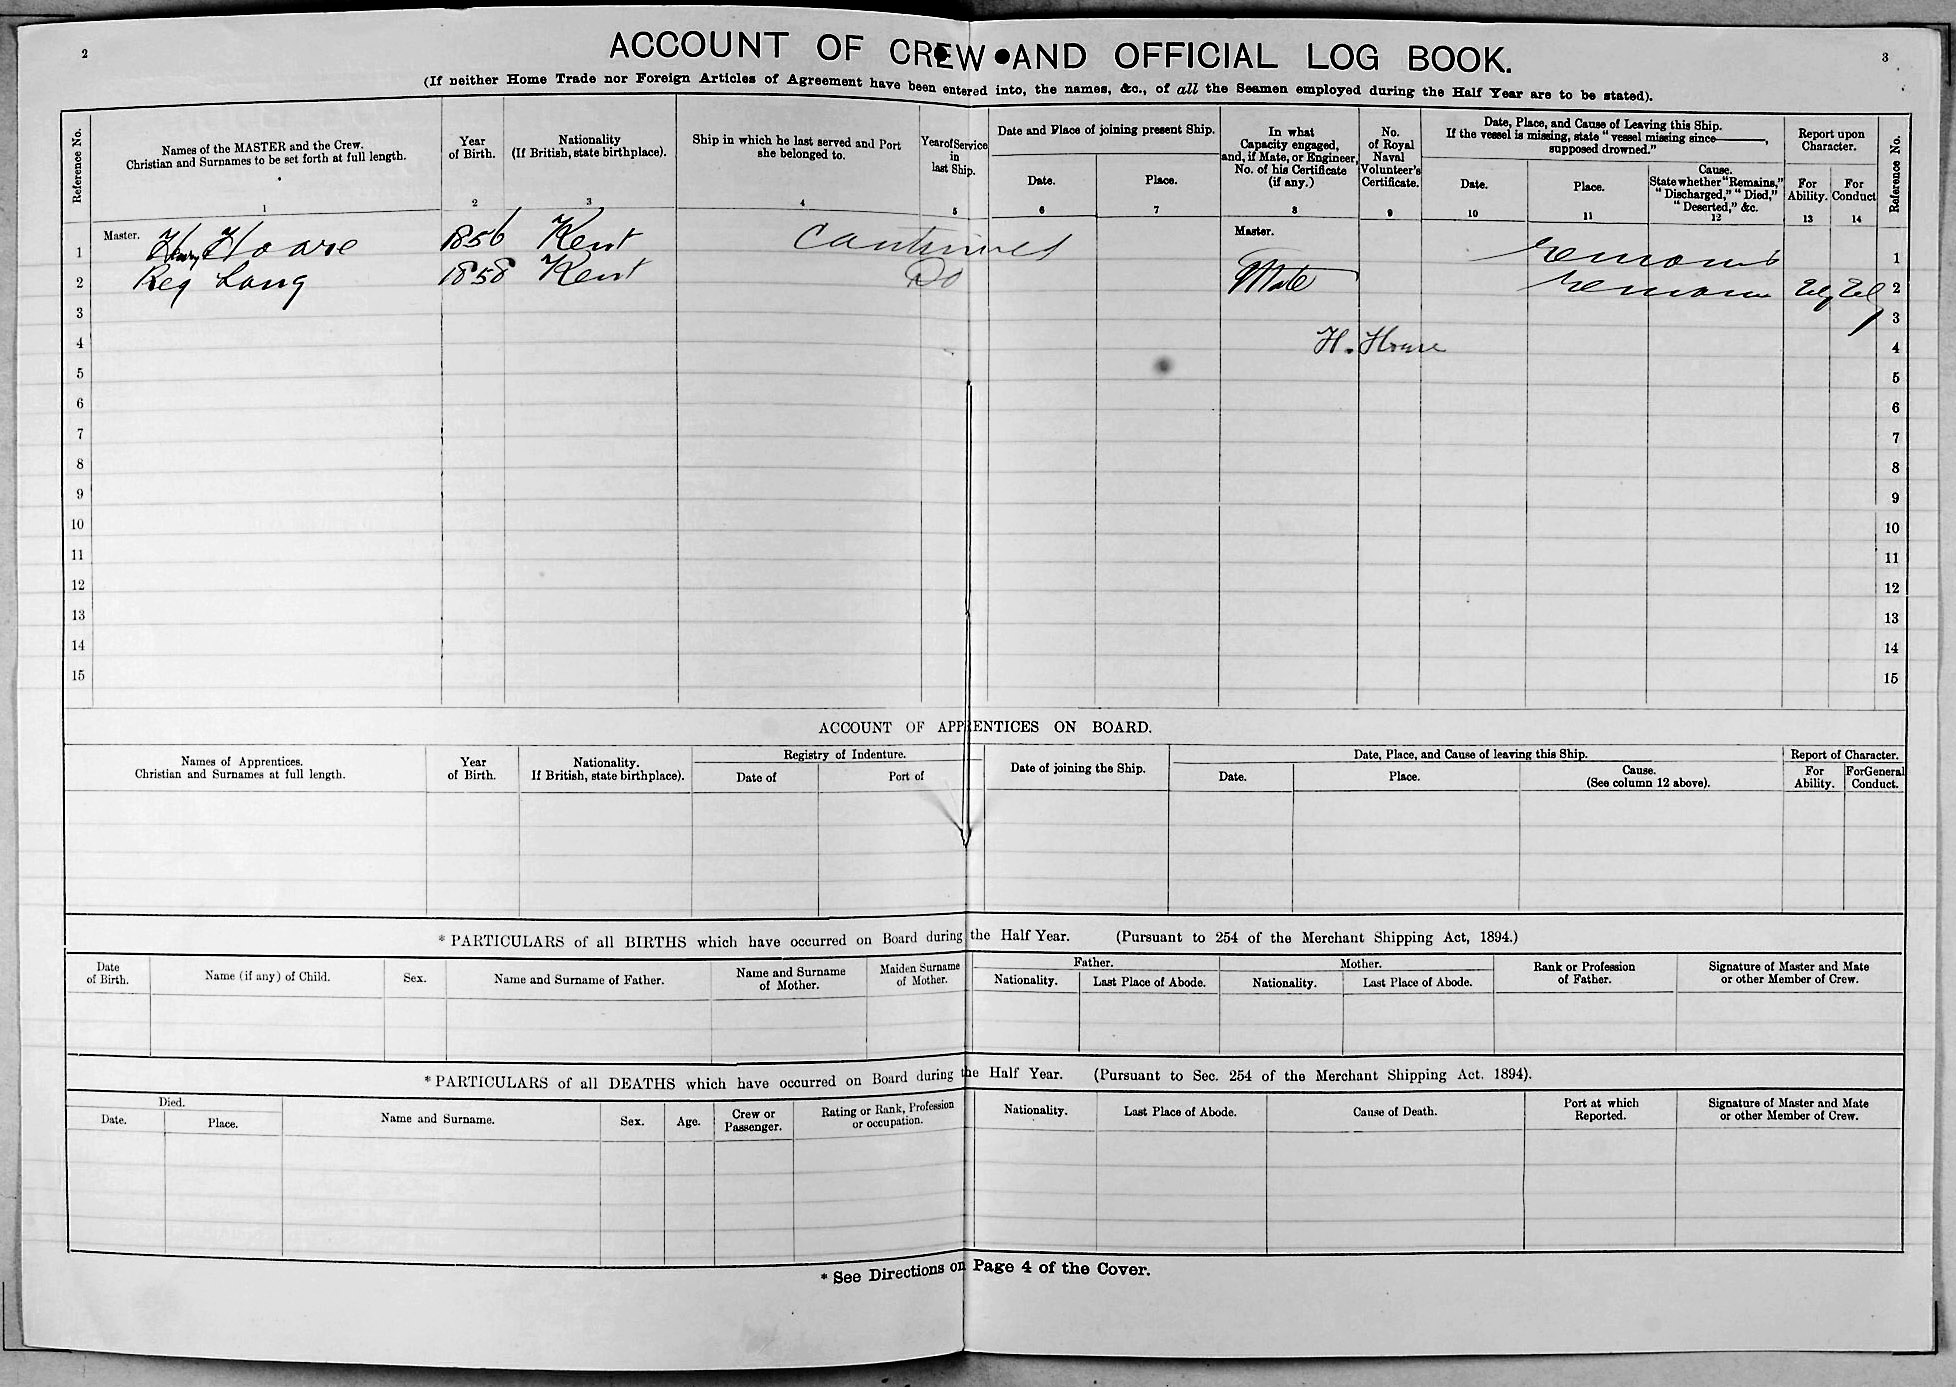 2
ACCOUNT OF CREW AND OFFICIAL LOG BOOK.
3
(If neither Home Trade nor Foreign Articles of Agreement have been entered into, the names, &c., of all the Seamen employed during the Half Year are to be stated).
Reference No.
Names of the MASTER and the Crew.
Christian and Surnames to be set forth at full length.
1
Year
of Birth.
2
Nationality
(If British, state birthplace).
3
Ship in which he last served and Port
she belonged to.
4
Year of Service
in
last Ship.
5
Date and Place of joining present Ship.
Date.
6
Place.
7
In what
Capacity engaged,
and, if Mate, or Engineer,
No. of his Certificate
(if any.)
8
No.
of Royal
Naval
Volunteer's
Certificate.
9
Date, Place, and Cause of Leaving this Ship.
If the vessel is missing, state "vessel missing since———,
supposed drowned."
Date.
10
Place.
11
Cause.
State whether "Remains,"
"Discharged," "Died,"
"Deserted," &c.
12
Report upon
Character.
For
Ability.
13
For
Conduct
14
Reference No.
1 Master. Henry Hoare 1856 Kent Continued Master. remains 1
2 Reg Long 1858 Kent Do Mate remains 2
3 3
4 H. Hoare 4
5 5
6 6
7 7
8 8
9 9
10 10
11 11
12 12
13 13
14 14
15 15
ACCOUNT OF APPRENTICES ON BOARD.
Names of Apprentices.
Christian and Surnames at full length.
Year
of Birth.
Nationality.
If British, state birthplace).
Registry of Indenture.
Date of
Port of
Date of joining the Ship.
Date, Place, and Cause of leaving this Ship.
Date.
Place.
Cause.
(See column 12 above).
Report of Character.
For
Ability.
For General
Conduct.
* PARTICULARS of all BIRTHS which have occurred on Board during the Half Year. (Pursuant to 254 of the Merchant Shipping Act, 1894.)
Date
of Birth.
Name (if any) of Child.
Sex.
Name and Surname of Father.
Name and Surname
of Mother.
Maiden Surname
of Mother.
Father.
Nationality.
Last Place of Abode.
Mother.
Nationality.
Last Place of Abode.
Rank or Profession
of Father.
Signature of Master and Mate
or other Member of Crew.
* PARTICULARS of all DEATHS which have occurred on Board during the Half Year. (Pursuant to Sec. 254 of the Merchant Shipping Act. 1894).
Died.
Date.
Place.
Name and Surname.
Sex.
Age.
Crew or
Passenger.
Rating or Rank, Profession
or occupation.
Nationality.
Last Place of Abode.
Cause of Death.
Port at which
Reported.
Signature of Master and Mate
or other Member of Crew.
* See Directions on Page 4 of the Cover.